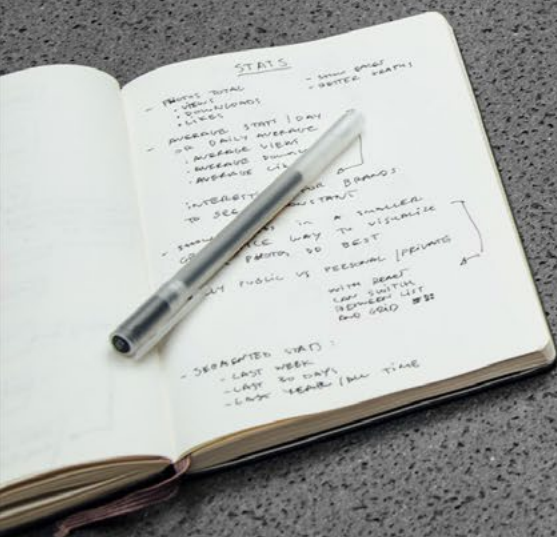 STATS
- PHOTOS TOTAL
• VIEWS
• DOWNLOADS
• LIKES
- SHOW DATES
- BETTER GRAPHS
- AVERAGE STATS / DAY
OR DAILY AVERAGE
• AVERAGE VIEWS
• AVERAGE DOWNL
• AVERAGE LI
INTERESTI OR BRANDS.
TO SEE NSTANT
- SHOW IN A SMALLER
GR WAY TO VISUALIZE
PHOTOS DO BEST
LY PUBLIC VS PERSONAL / PRIVATE
WITH REACT
CAN SWITCH
BETWEEN LIST
AND GRID
- SEGMENTED STATS :
- LAST WEEK
- LAST 30 DAYS
- LAST YEAR / ALL TIME